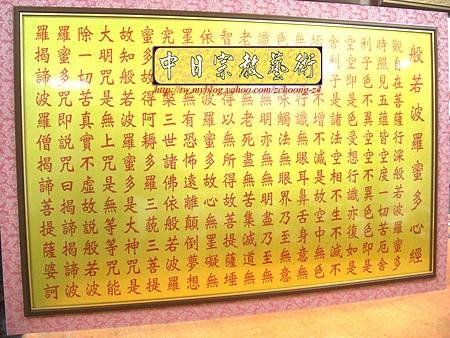 般若波羅蜜多心經
觀自在菩薩行深般若波羅蜜多
時照見五蘊皆空度一切苦厄舍
利子色不異空空不異色色即是
空空即是色受想行識亦復如是
舍利子是諸法空相不生不滅不
不增不減是故空中無色
行識無眼耳鼻舌身意無
味觸法無眼界乃至無意
識界無明亦無無明盡乃至無
老死無老死盡無苦集滅道無
智亦得以無所得故菩提薩埵
依般波羅蜜多故心無罣礙無
罣礙無有恐怖遠離顛倒夢想
究竟槃三世諸佛依般若波羅
蜜多得阿耨多羅三藐三菩提
故知般若波羅蜜多是大神咒是
大明咒是無上咒是無等等咒能
除一切苦真實不虛故說般若波
羅蜜多咒即說咒曰揭諦揭諦波
羅揭諦波羅僧揭諦菩提薩婆訶
中日宗教藝術
http://tw.myblog.yahoo.com/zchoong-24